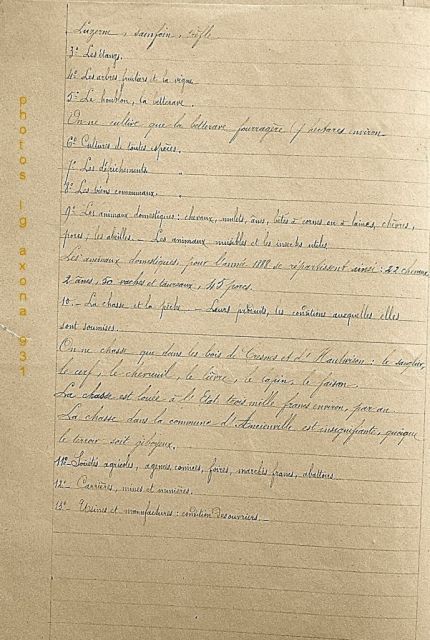 Luzerne, sainfoin, trèfle
3° Les étangs.
4° Les arbres fruitiers et la vigne
5° Le houblon, la betterave.
On ne cultive que la betterave fourragère hectares environ
6° Cultures de toutes espèces.
7° Les défrichements
8° Les biens communaux.
9° Les animaux domestiques: chevaux, mulets, ânes, bêtes à cornes ou à laines, chèvres,
porcs; les abeilles. - Les animaux nuisibles et les insectes utiles
Les animaux domestiques, pour l'année 1888 se répartissent ainsi: 22 chevaux
2 ânes, 50 vaches et taureaux, 45 porcs.
10.- La chasse et la pêche. - Leurs produits, les conditions auxquelles elles
sont soumises.
On ne chasse que dans les bois de Cresnes et d'Hautwison: le sanglier,
le cerf, le chevreuil, le lièvre, le lapin, le faisan.
La chasse est louée à l'Etat trois mille francs environ, par an
La chasse dans la commune d'Ancienville est insignifiante, quoique
le terroir soit giboyeux.
11° Sociétés agricoles, agences, comices, foires, marchés francs, abattoirs
12° Carrières, mines et minières.
13° Usines et manufactures: condition des ouvriers. -
photos lg axona 931